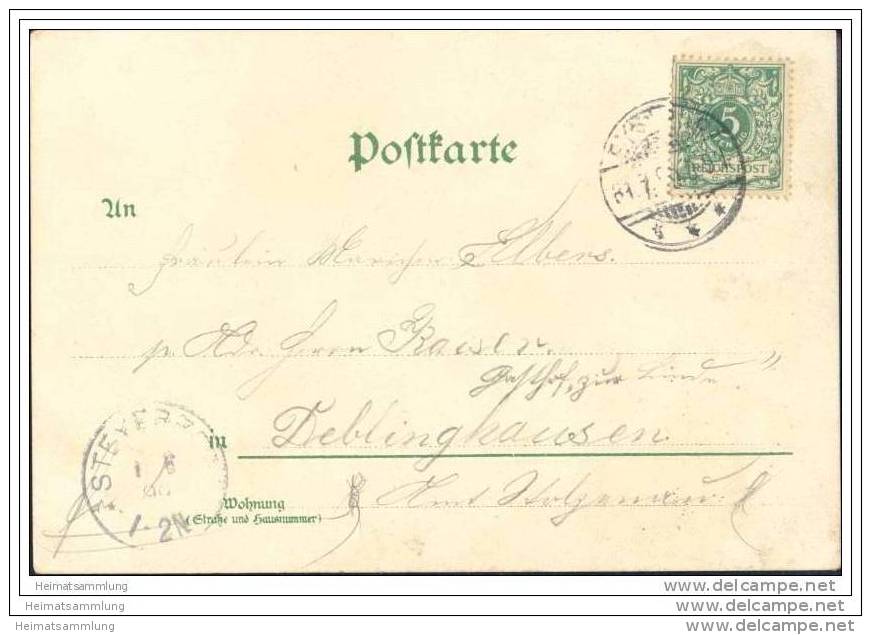 Postkarte
5
REICHSPOST
An
Fräulein Mariechen Elbers.
p. Adr. Herrn Kaiser.
Gasthof „zur Linde"
in Deblinghausen
Amt Stolzenau.
STEYERB
1 8
1-2N
Wohnung
(Straße und Hausnummer)
Heimatsammlung
Heimatsammlung
Heimatsammlung
www.delcampe.net
www.delcampe.net
www.delcampe.net